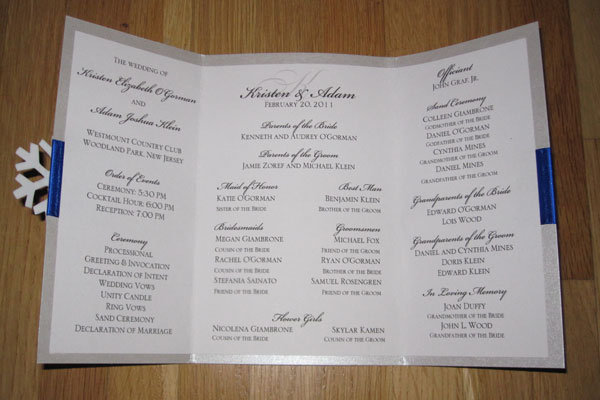 The Wedding of
Kristen Elizabeth O'Gorman
and
Adam Joshua Klein
Westmount Country Club
Woodland Park, New Jersey
Order of Events
Ceremony: 5:30 PM
Cocktail Hour: 6:00 PM
Reception: 7:00 PM
Ceremony
Processional
Greeting & Invocation
Declaration of Intent
Wedding Vows
Unity Candle
Ring Vows
Sand Ceremony
Declaration of Marriage
Kristen & Adam
February 20, 2011
Parents of the Bride
Kenneth and Audrey O'Gorman
Parents of the Groom
Jamie Zoref and Michael Klein
Maid of Honor
Katie O'Gorman
Sister of the Bride
Best Man
Benjamin Klein
Brother of the Groom
Bridesmaids
Megan Giambrone
Cousin of the Bride
Rachel O'Gorman
Cousin of the Bride
Stefania Sainato
Friend of the Bride
Groomsmen
Michael Fox
Friend of the Groom
Ryan O'Gorman
Brother of the Bride
Samuel Rosengren
Friend of the Groom
Flower Girls
Nicolena Giambrone
Cousin of the Bride
Skylar Kamen
Cousin of the Groom
Officiant
John Graf, Jr.
Sand Ceremony
Colleen Giambrone
Godmother of the Bride
Daniel O'Gorman
Godfather of the Bride
Cynthia Mines
Grandmother of the Groom
Daniel Mines
Grandfather of the Groom
Grandparents of the Bride
Edward O'Gorman
Lois Wood
Grandparents of the Groom
Daniel and Cynthia Mines
Doris Klein
Edward Klein
In Loving Memory
Joan Duffy
Grandmother of the Bride
John L. Wood
Grandfather of the Bride